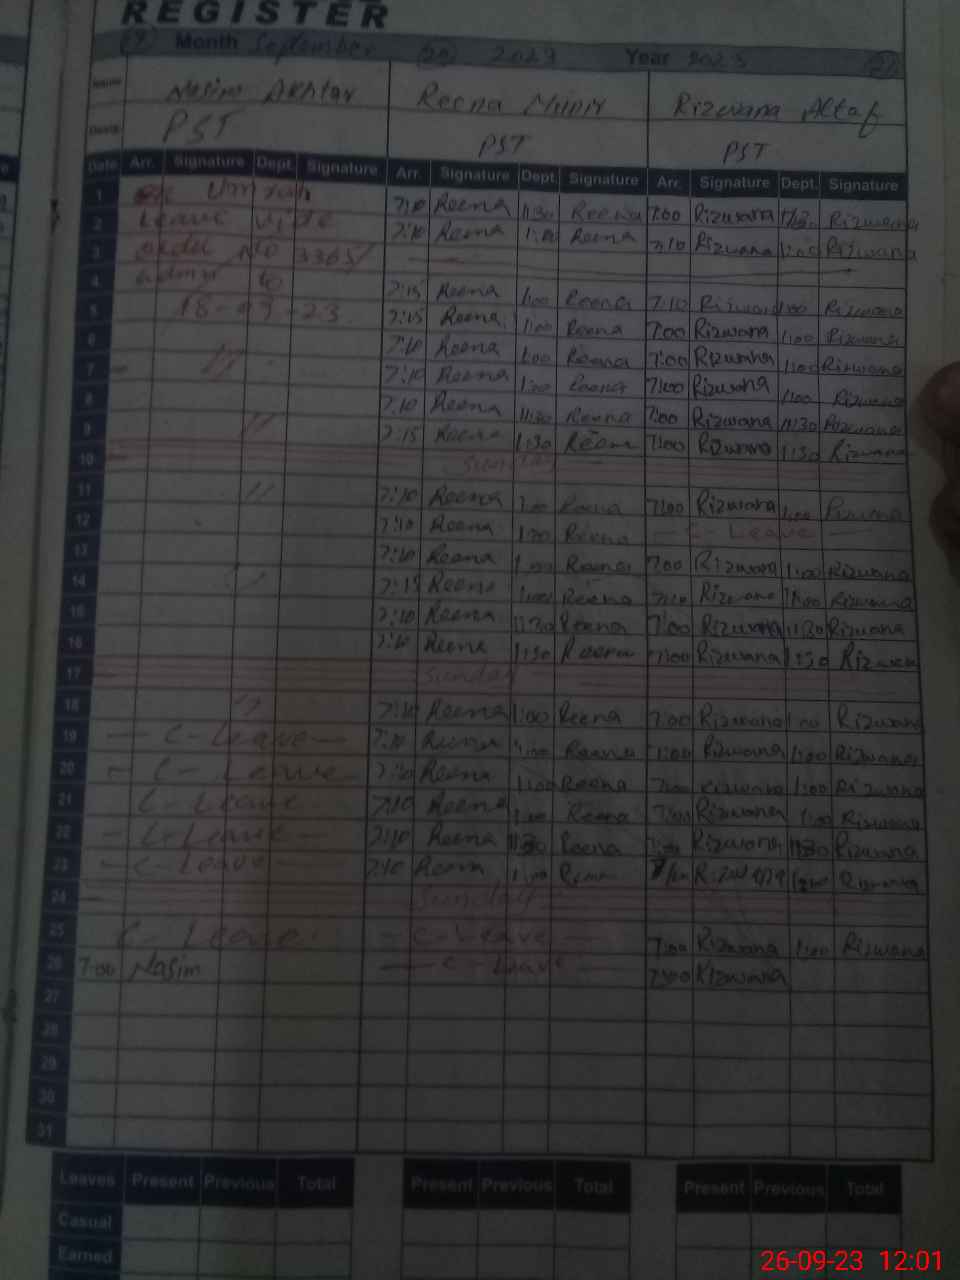 REGISTER
(9) Month September (20) 2023 Year 2023
Name Nasim Akhtar Reena Munir Rizwana Altaf
PST PST PST
Date Arr. Signature Dept. Signature Arr. Signature Dept. Signature Arr. Signature Dept. Signature
1 Umrah 7:10 Reena 1:30 Reena 7:00 Rizwana Rizwana
2 Leave vide 7:10 Reena 1:00 Reena 7:10 Rizwana 1:00 Rizwana
3 order No 3365/
4 admn to 7:15 Reena 1:00 Reena 7:10 Rizwana 1:00 Rizwana
5 18-09-23 7:15 Reena 1:00 Reena 7:00 Rizwana 1:00 Rizwana
6 7:10 Reena 1:00 Reena 7:00 Rizwana 1:00 Rizwana
7 – // 7:10 Reena 1:00 Reena 7:00 Rizwana 1:00 Rizwana
8 7:10 Reena 11:30 Reena 7:00 Rizwana 11:30 Rizwana
9 // 7:15 Reena 1:30 Reena 7:00 Rizwana 1:30 Rizwana
10 Sunday
11 // 7:10 Reena 1:00 Reena 7:00 Rizwana 1:00 Rizwana
12 7:10 Reena 1:00 Reena — C-Leave —
13 7:10 Reena 1:00 Reena 7:00 Rizwana 1:00 Rizwana
14 // 7:15 Reena 1:00 Reena 7:10 Rizwana 1:00 Rizwana
15 7:10 Reena 11:30 Reena 7:00 Rizwana 11:30 Rizwana
16 7:10 Reena 1:30 Reena 7:00 Rizwana 1:30 Rizwana
17 Sunday
18 // 7:10 Reena 1:00 Reena 7:00 Rizwana 1:00 Rizwana
19 — C-Leave — 7:10 Reena 1:00 Reena 7:00 Rizwana 1:00 Rizwana
20 – C-Leave 7:10 Reena 1:00 Reena 7:00 Rizwana 1:00 Rizwana
21 C-Leave 7:10 Reena 1:00 Reena 7:00 Rizwana 1:00 Rizwana
22 – C-Leave – 7:10 Reena 11:30 Reena Rizwana 11:30 Rizwana
23 – C-Leave – 7:10 Reena 1:00 Reena Rizwana Rizwana
24 Sunday
25 C-Leave – C-Leave – 7:00 Rizwana 1:00 Rizwana
26 7:00 Nasim — C-Leave 7:00 Rizwana
27
28
29
30
31
Leaves Present Previous Total Present Previous Total Present Previous Total
Casual
Earned
26-09-23 12:01